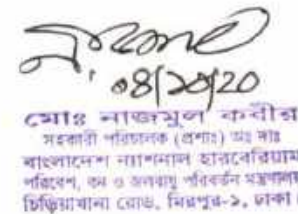 ০৪/১০/২০
মোঃ নাজমুল কবীর
সহকারী পরিচালক (প্রশাঃ) অঃ দাঃ
বাংলাদেশ ন্যাশনাল হারবেরিয়াম
পরিবেশ, বন ও জলবায়ু পরিবর্তন মন্ত্রণালয়
চিড়িয়াখানা রোড, মিরপুর-১, ঢাকা।